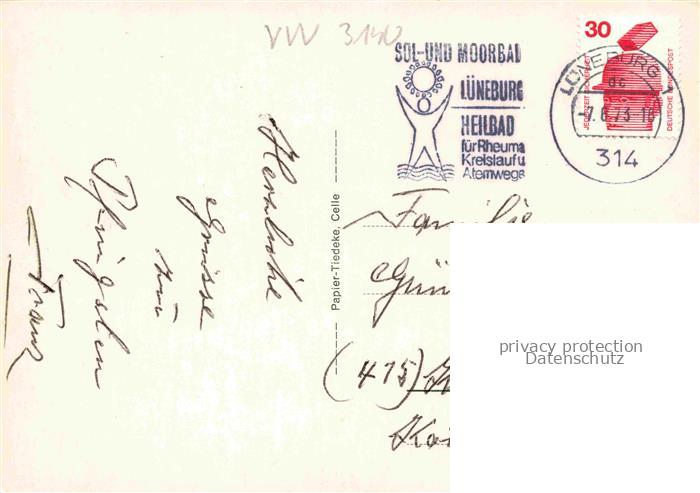 VVV 3140
SOL-UND MOORBAD
LÜNEBURG
HEILBAD
für Rheuma
Kreislauf u
Atemwege
30
JEDERZEIT SICHERHEIT
DEUTSCHE BUNDESPOST
LÜNEBURG 1
dc
-7.6.73-18
314
Herzliche
Grüsse
zu
Pfingsten
Franz
Papier-Tiedeke, Celle
Familie
Gün
(475)
Kai
privacy protection
Datenschutz